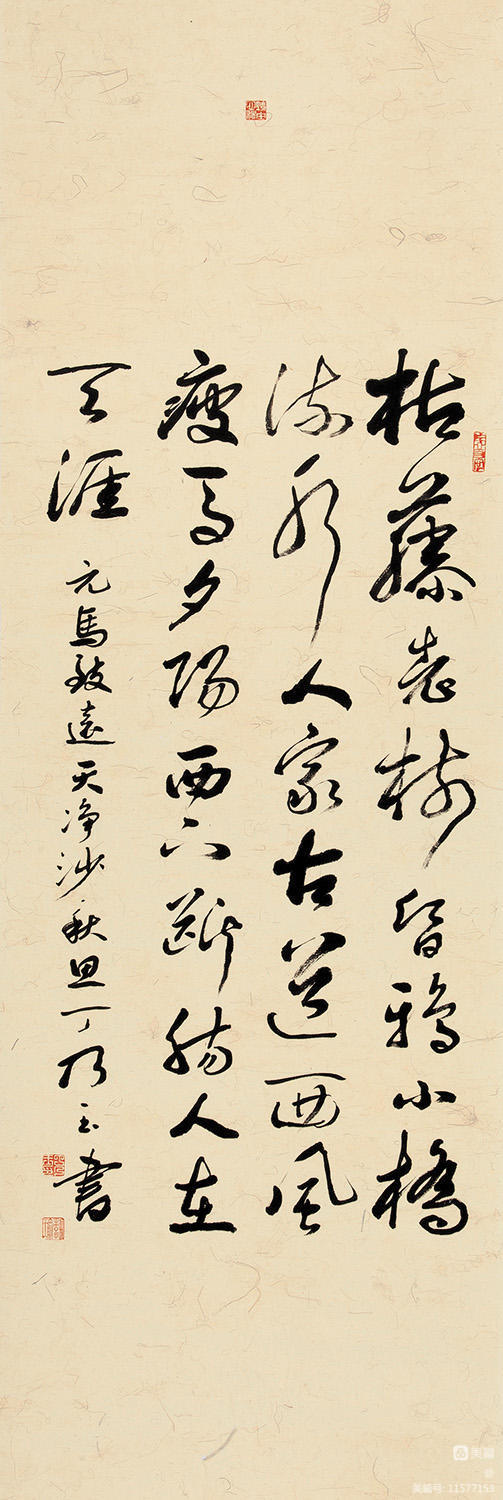 枯藤老树昏鸦小橋
流水人家古道西風
瘦马夕陽西下断腸人在
天涯
元馬致遠天净沙秋思丁乃玉書
美篇
美篇号: 11577153